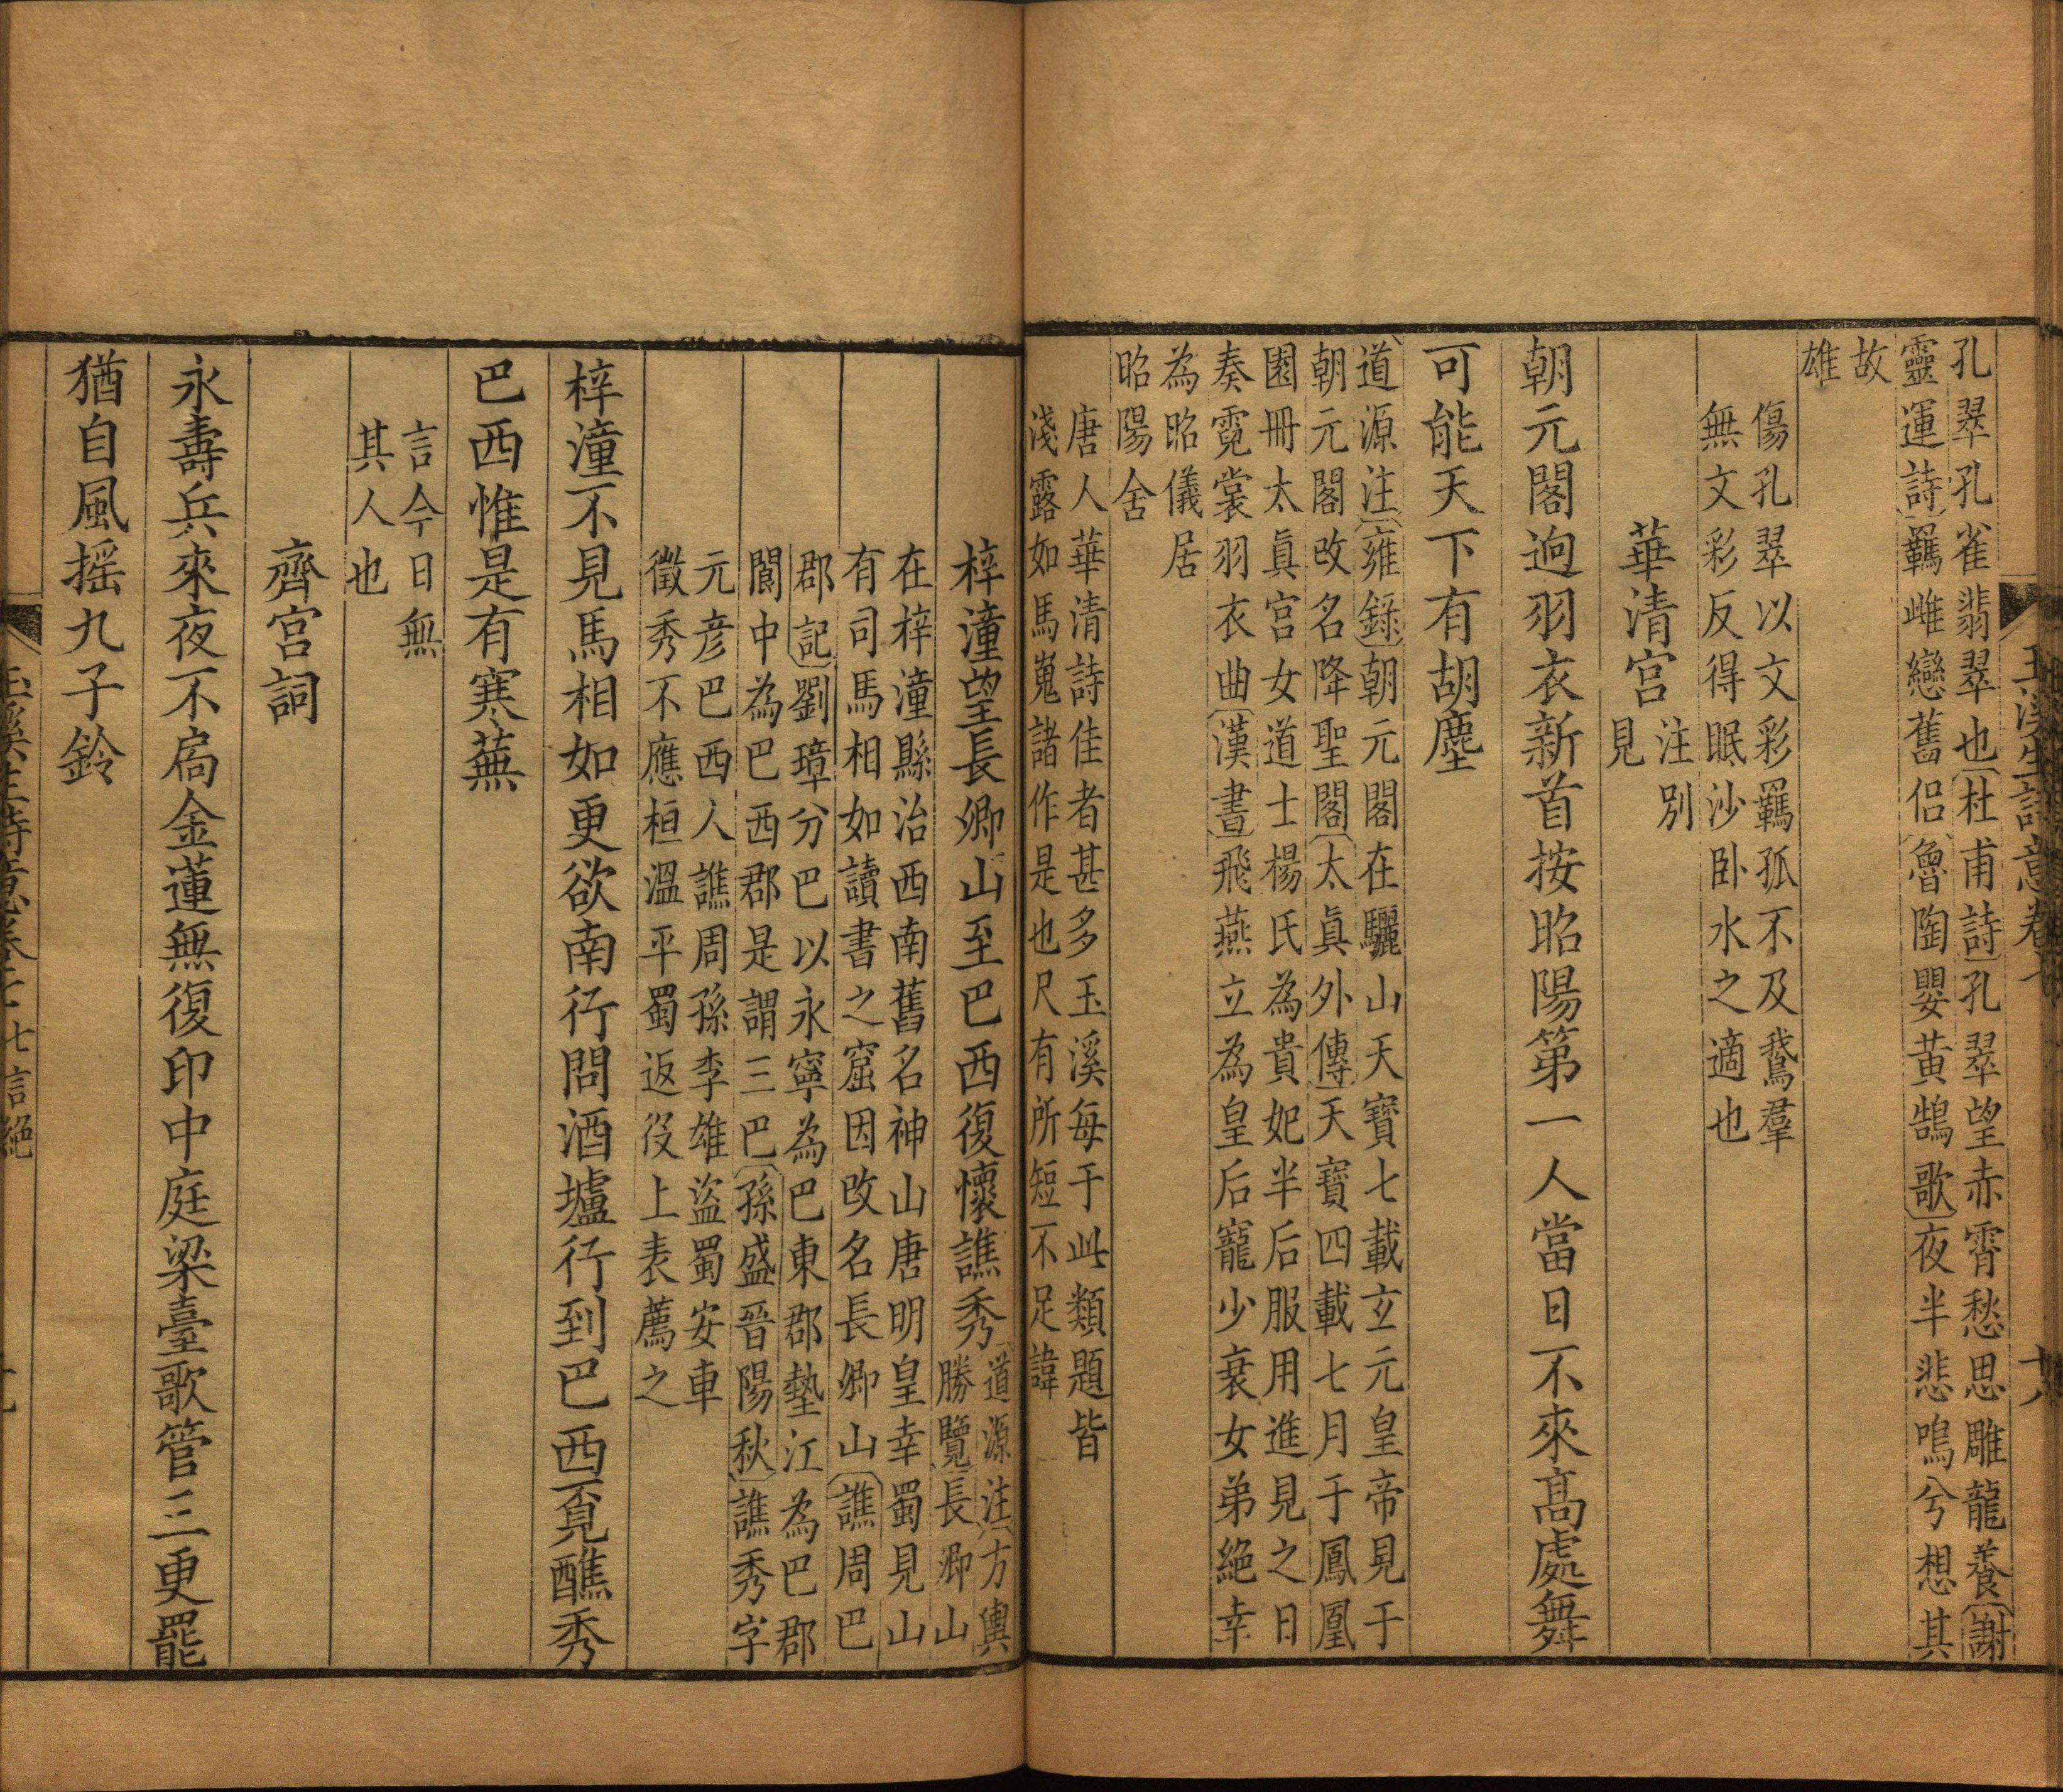 孔翠孔雀翡翠也杜甫詩孔翠望赤霄愁思雕龍養謝
靈運詩羈雌戀舊侶魯陶嬰黃鵠歌夜半悲鳴兮想其
故
雄
傷孔翠以文彩羈孤不及鵞羣
無文彩反得眠沙卧水之適也
華清宮注別
見
朝元閣迥羽衣新首按昭陽第一人當日不來髙處舞
可能天下有胡塵
道源注雍錄朝元閣在驪山天寶七載玄元皇帝見于
朝元閣改名降聖閣太眞外傳天寶四載七月于鳳凰
園冊太眞宮女道士楊氏為貴妃半后服用進見之日
奏霓裳羽衣曲漢書飛燕立為皇后寵少衰女弟絕幸
為昭儀居
昭陽舍
唐人華清詩佳者甚多玉溪每于此類題皆
淺露如馬嵬諸作是也尺有所短不足諱
梓潼望長卿山至巴西復懷譙秀道源注方輿
勝覽長卿山
在梓潼縣治西南舊名神山唐明皇幸蜀見山
有司馬相如讀書之窟因改名長卿山譙周巴
郡記劉璋分巴以永寧為巴東郡墊江為巴郡
閬中為巴西郡是謂三巴孫盛晉陽秋譙秀字
元彦巴西人譙周孫李雄盜蜀安車
徵秀不應桓溫平蜀返役上表薦之
梓潼不見馬相如更欲南行問酒壚行到巴西覓醮秀
巴西惟是有寒蕪
言今日無
其人也
齊宮詞
永壽兵來夜不扃金蓮無復印中庭梁臺歌管三更罷
猶自風摇九子鈴
玉溪生詩意卷七
七言絕